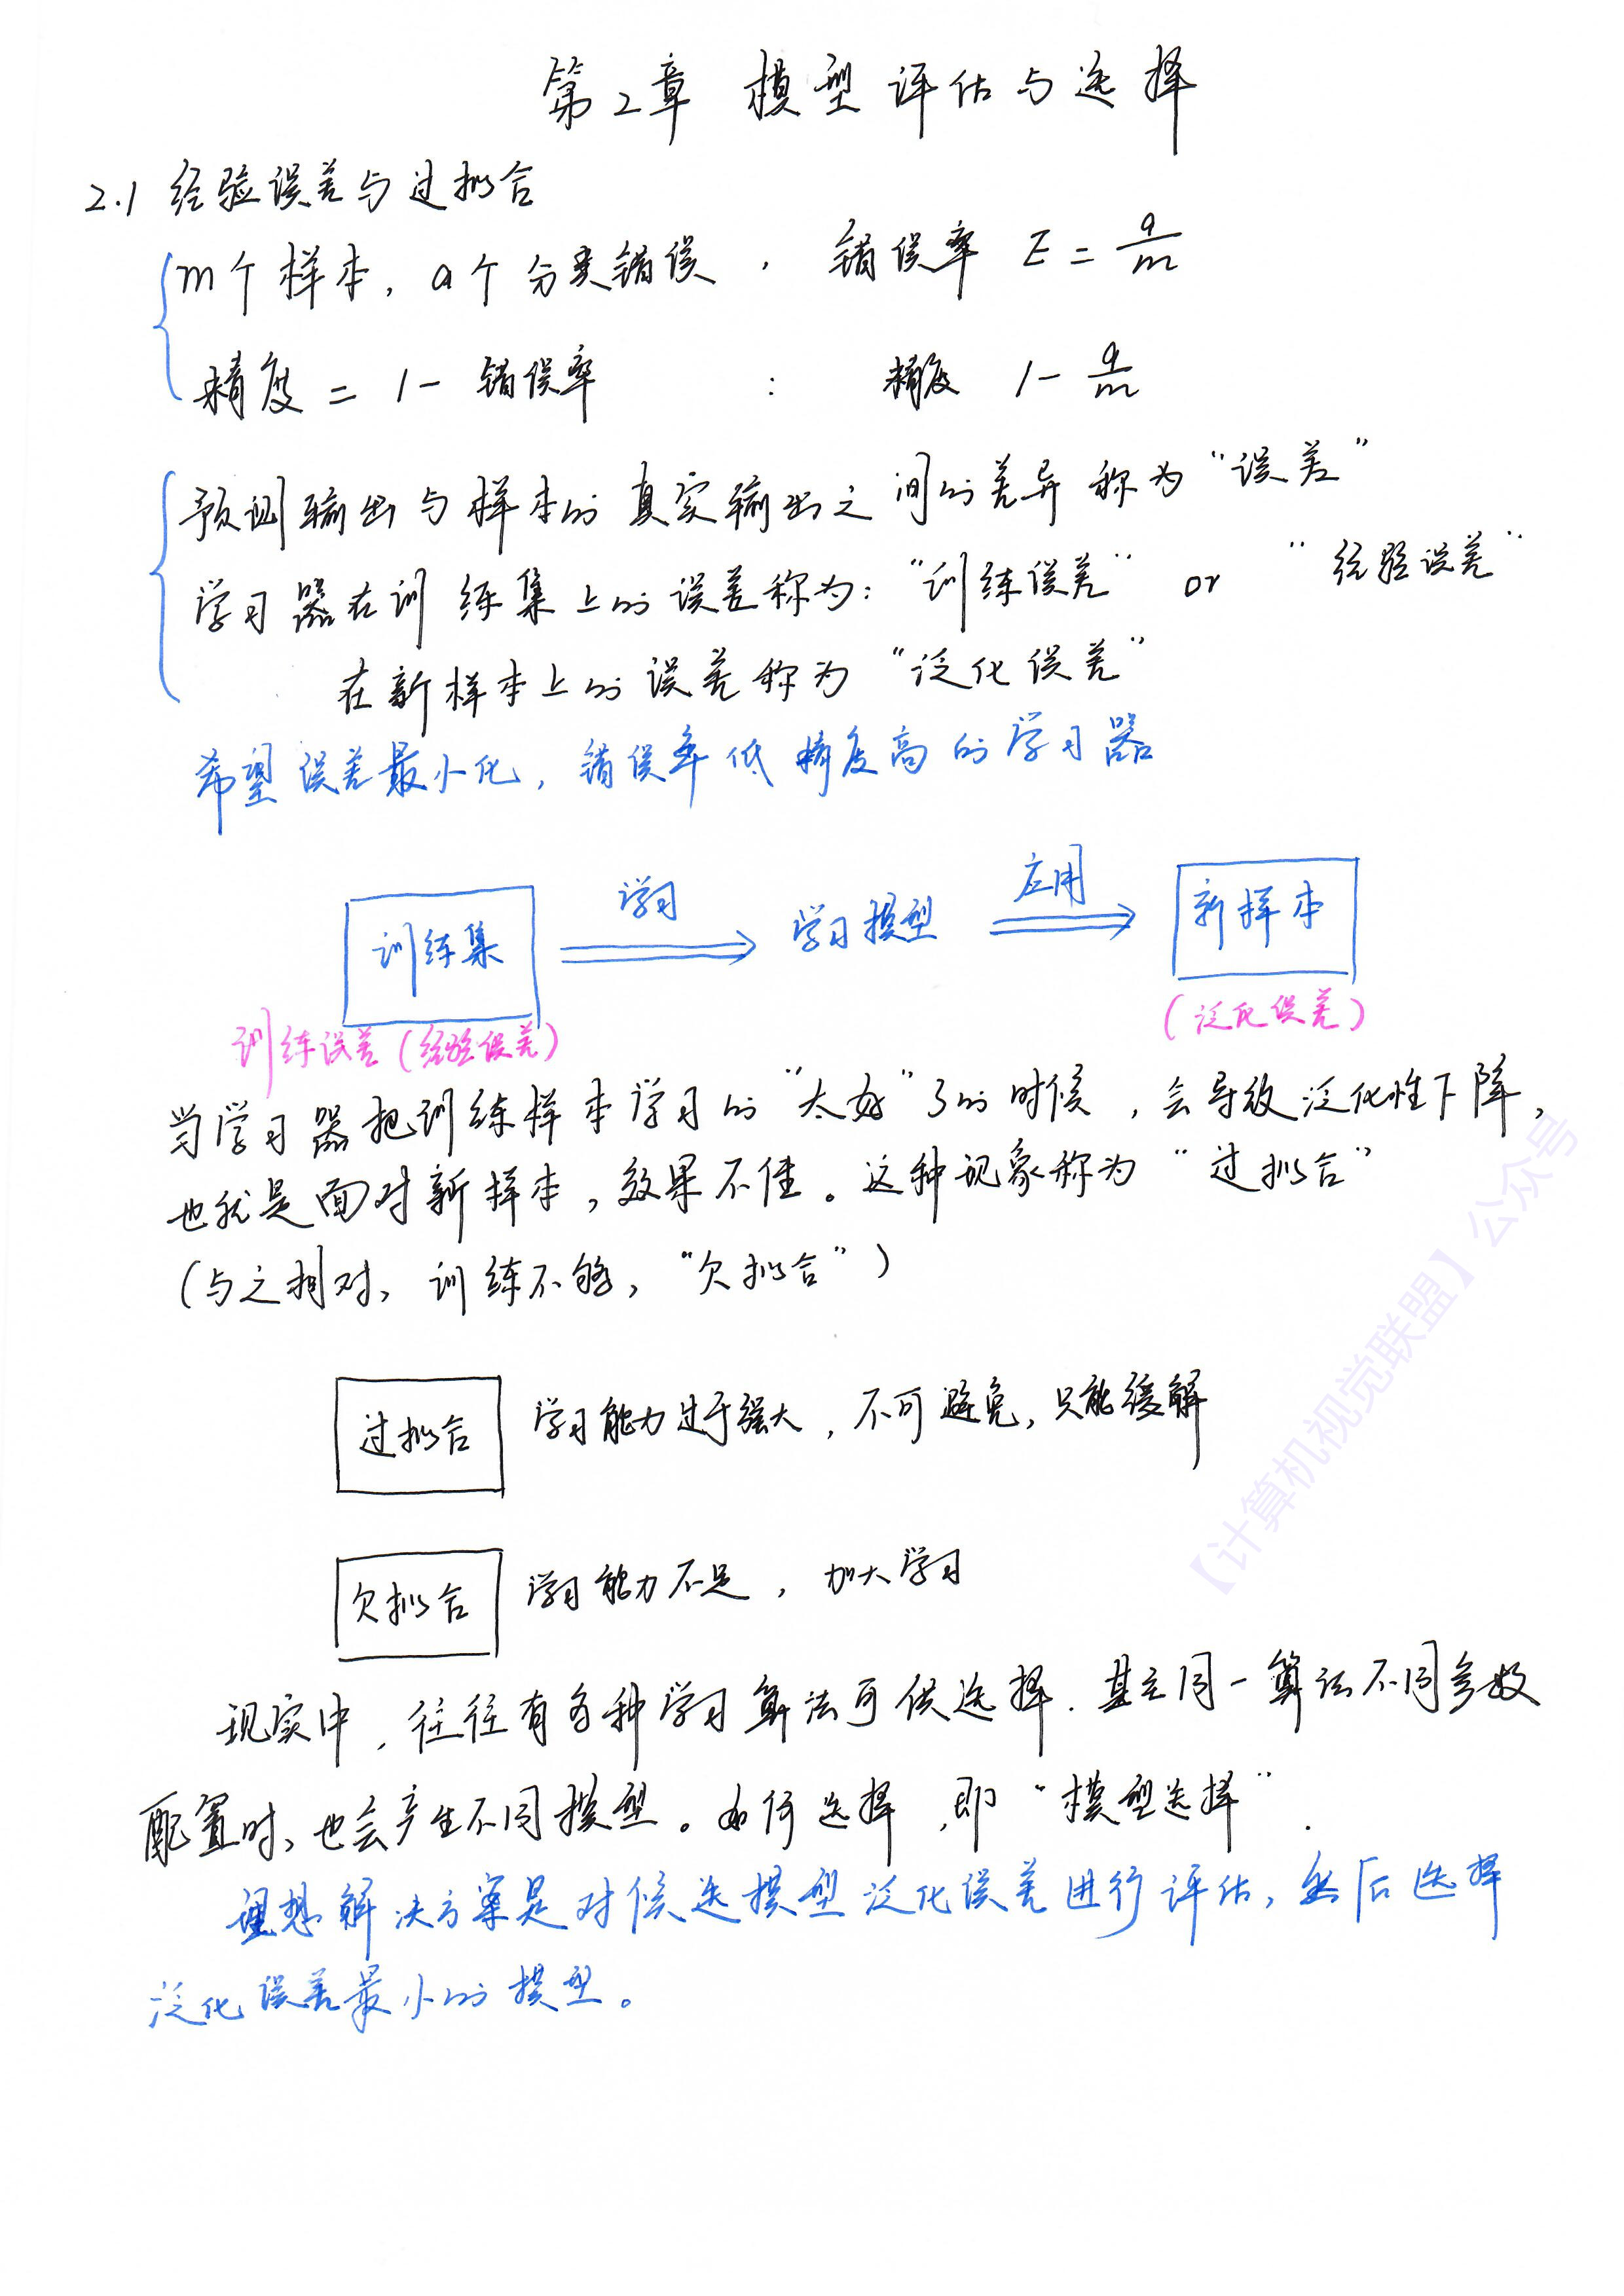 第2章 模型评估与选择
2.1 经验误差与过拟合
m个样本, a个分类错误, 错误率 E = a/m
精度 = 1 - 错误率 : 精度 1 - a/m
预测输出与样本的真实输出之间的差异称为“误差”
学习器在训练集上的误差称为:“训练误差” or “经验误差”
在新样本上的误差称为“泛化误差”
希望误差最小化, 错误率低精度高的学习器
训练集 学习 学习模型 应用 新样本
训练误差(经验误差) (泛化误差)
当学习器把训练样本学习的“太好”了的时候, 会导致泛化性下降,
也就是面对新样本, 效果不佳。这种现象称为“过拟合”
(与之相对, 训练不够, “欠拟合”)
过拟合 学习能力过于强大, 不可避免, 只能缓解
欠拟合 学习能力不足, 加大学习
现实中, 往往有多种学习算法可供选择. 甚至同一算法不同参数
配置时, 也会产生不同模型。如何选择, 即“模型选择”.
理想解决方案是对候选模型泛化误差进行评估, 然后选择
泛化误差最小的模型。
【计算机视觉联盟】公众号